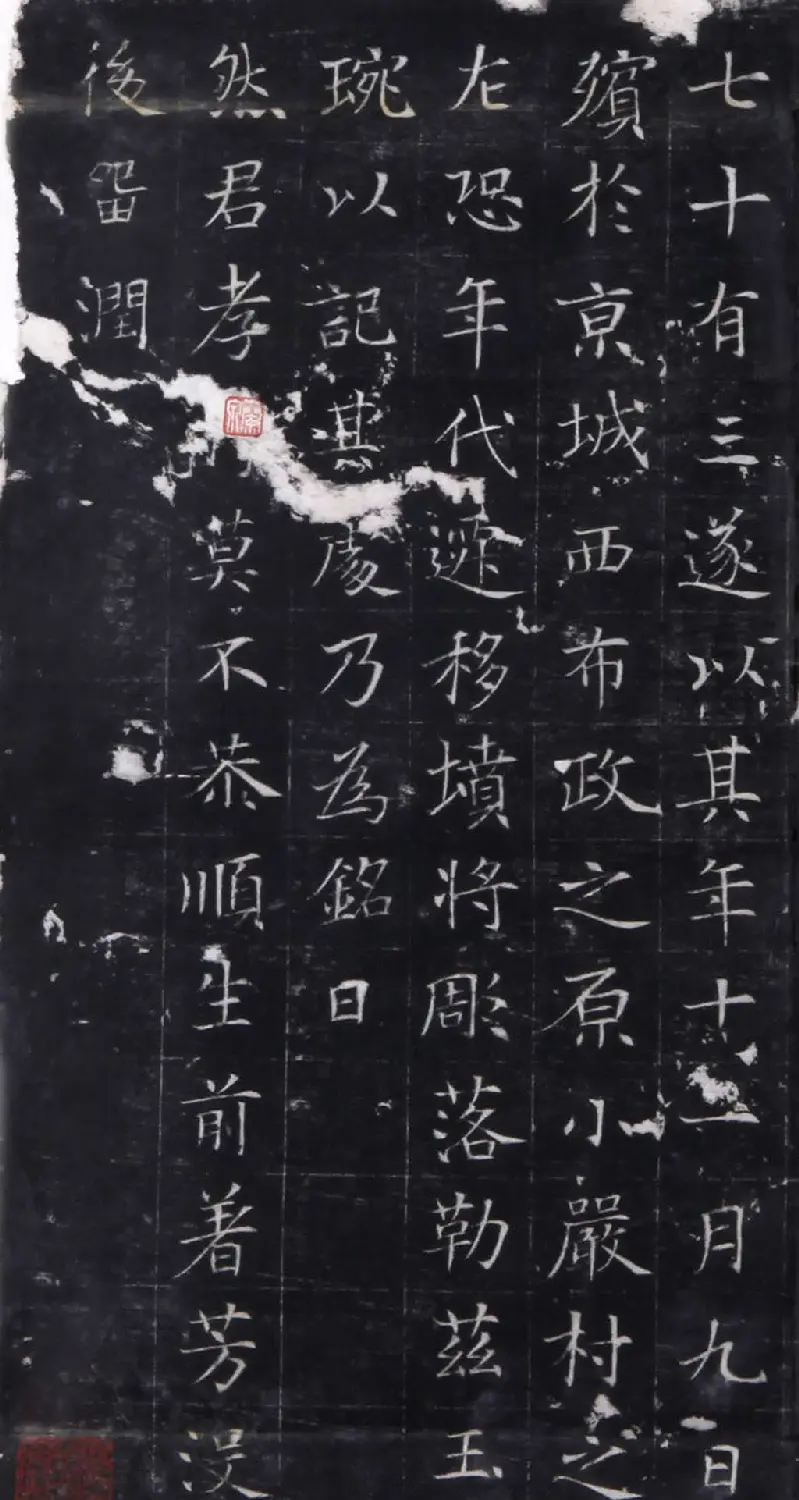 七十有三遂以其年十一月九日
殯於亰城西布政之原小嚴村之
左恐年代遞移墳將彫落勒茲玉
琬以記其處乃為銘曰
然君孝莫不恭順生前著芳没
後畱潤